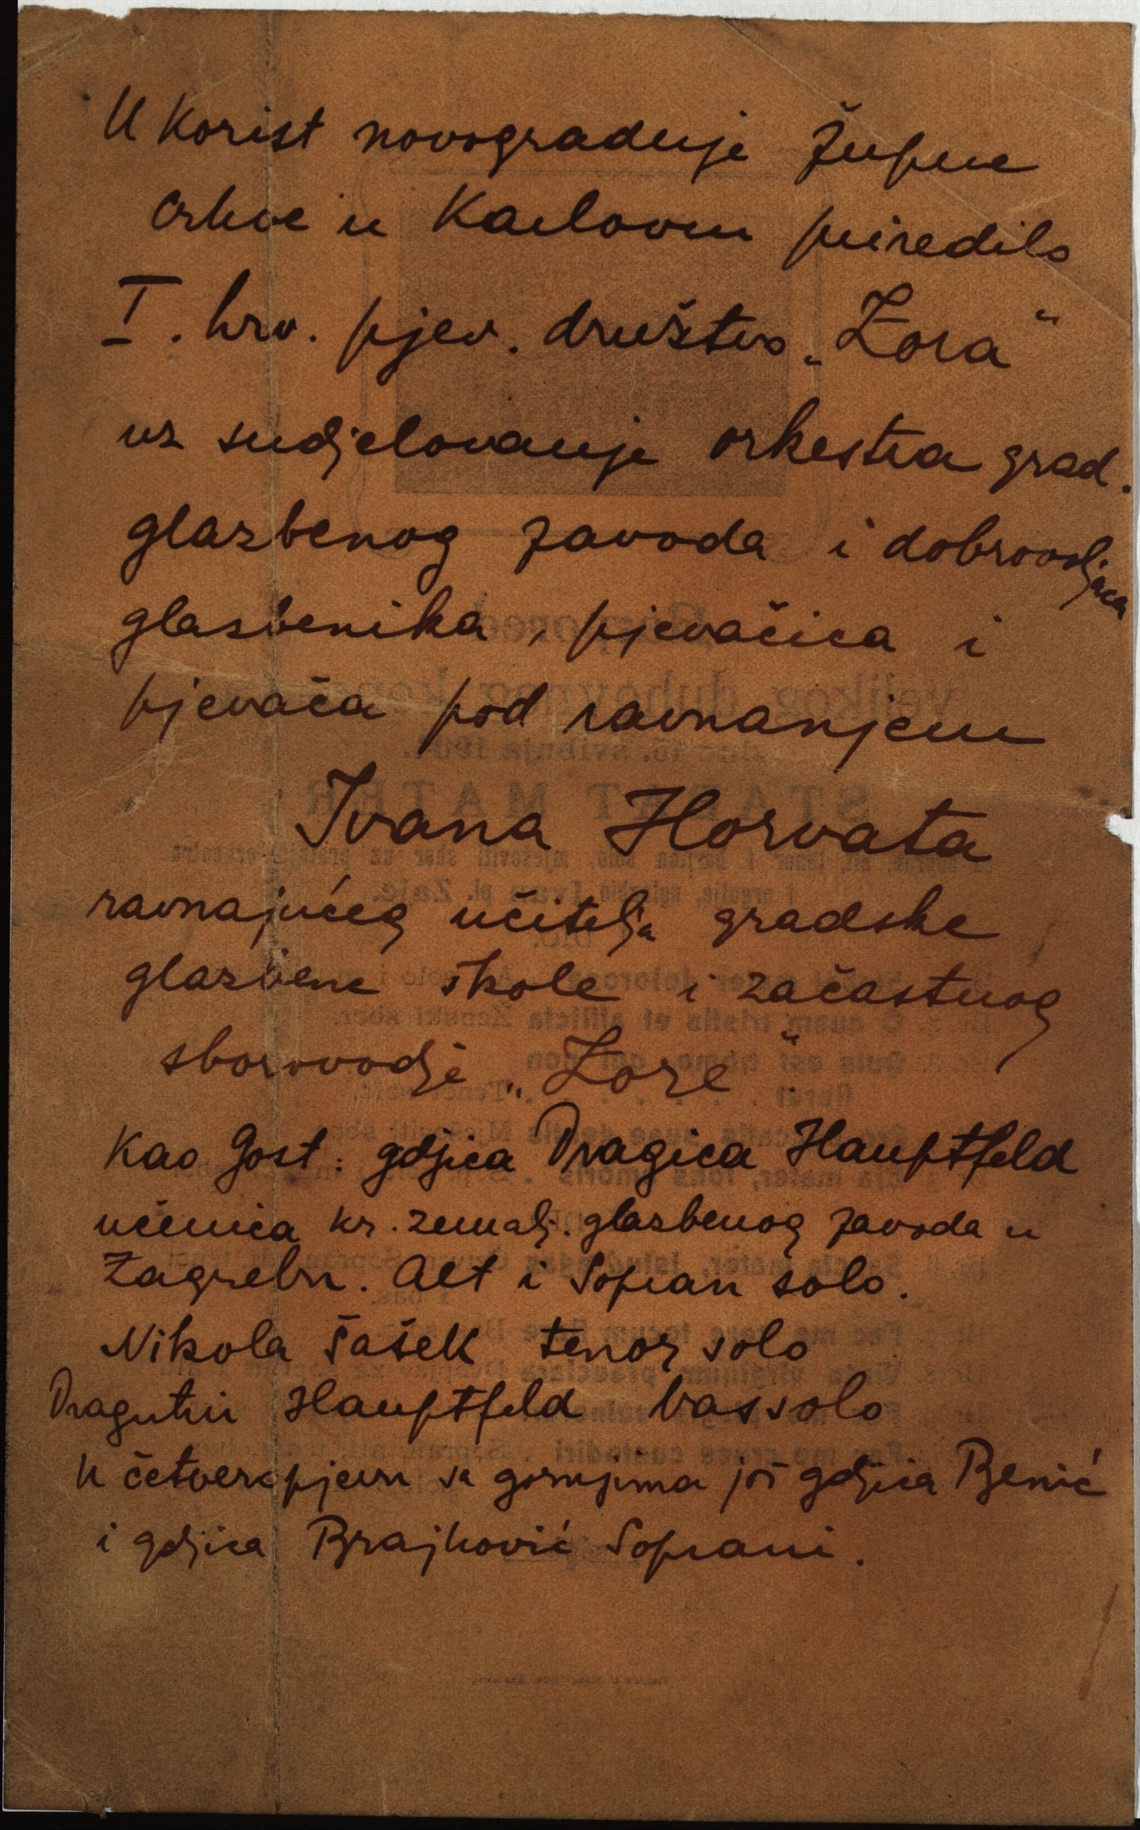 U korist novogradnje župne
crkve u Karlovcu priredilo
I. hrv. pjev. društvo „Zora“
uz sudjelovanje orkestra grad.
glazbenog zavoda i dobrovoljaca
glasbenika, pjevačica i
pjevača pod ravnanjem
Ivana Horvata
ravnajućeg učitelja gradske
glazbene škole i začastnog
sborovodje „Zore“.
Kao gost: gdjica Dragica Hauptfeld
učenica kr. zemalj. glasbenog zavoda u
Zagrebu. Alt i Sopran solo.
Nikola Šašek tenor solo
Dragutin Hauptfeld bassolo
U četveropjevu sa gornjima još gdjica Benić
i gdjica Brajković Soprani.